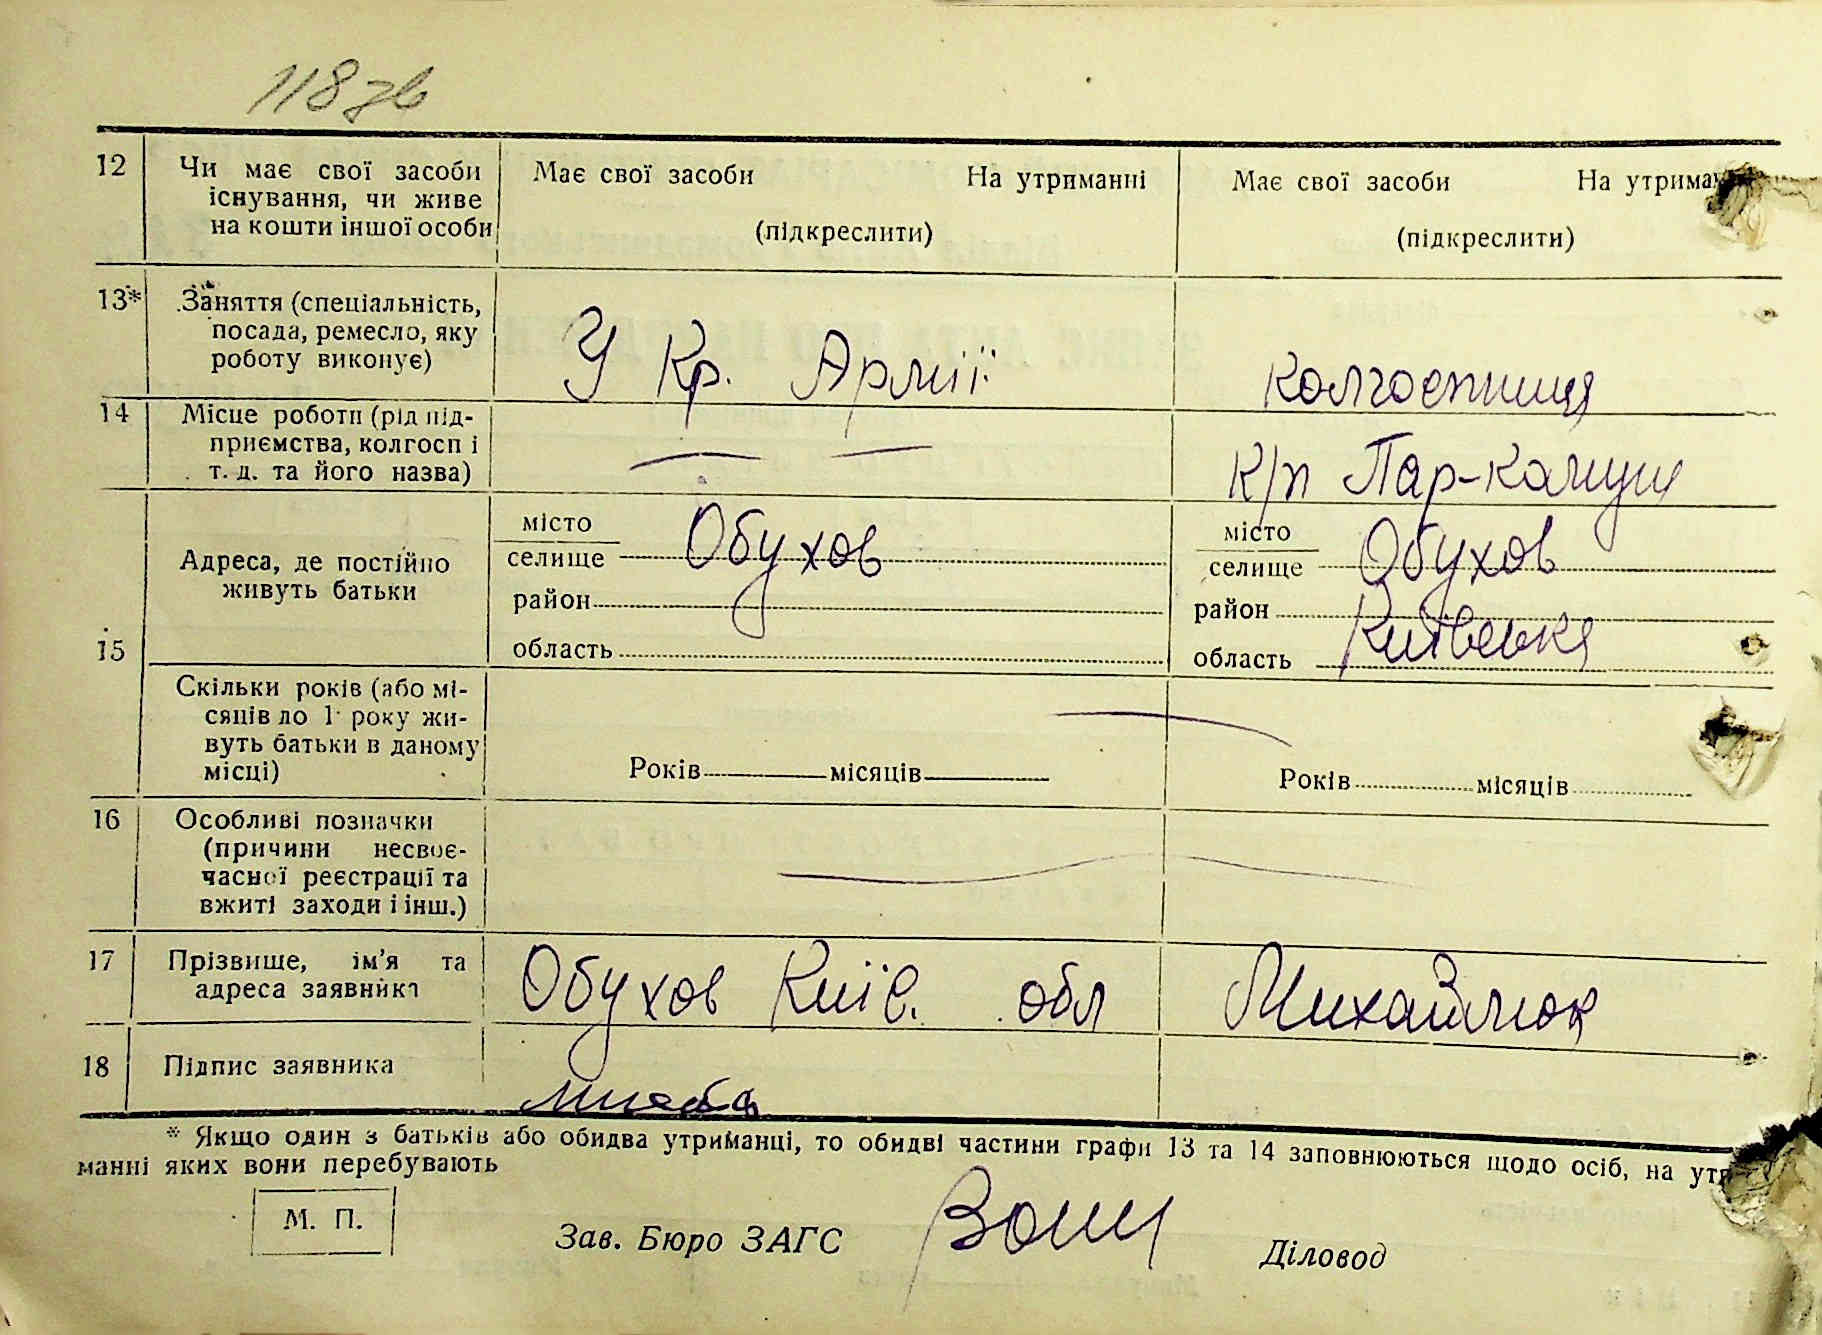 118 зв
12 Чи має свої засоби існування, чи живе на кошти іншої особи
Має свої засоби На утриманні
(підкреслити)
Має свої засоби На утрима
(підкреслити)
13* Заняття (спеціальність, посада, ремесло, яку роботу виконує)
У Кр. Армії
Колгоспниця
14 Місце роботи (рід підприємства, колгосп і т. д. та його назва)
К/п Пар-комуни
15 Адреса, де постійно живуть батьки
місто
селище Обухов
район
область
місто
селище Обухов
район
область Київська
Скільки років (або місяців до 1 року живуть батьки в даному місці)
Років місяців
Років місяців
16 Особливі позначки (причини несвоєчасної реєстрації та вжиті заходи і інш.)
17 Прізвище, ім'я та адреса заявника
Обухов Київ. обл Михайлюк
18 Підпис заявника
* Якщо один з батьків або обидва утриманці, то обидві частини графи 13 та 14 заповнюються щодо осіб, на утр
манні яких вони перебувають
М. П.
Зав. Бюро ЗАГС
Діловод